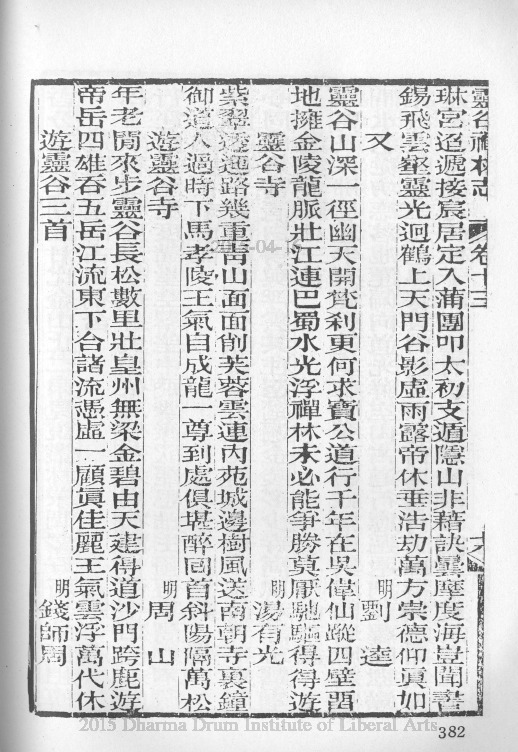 靈谷禪林志 卷十三 十六
琳宮迢遞接宸居定入蒲團叩太初支遁隱山非藉訣曇摩度海豈聞書
錫飛雲壑靈光迴鶴上天門谷影虛雨露帝休垂浩劫萬方崇德仰眞如
又 明 劉逵
靈谷山深一徑幽天開梵刹更何求寶公道行千年在吳偉仙蹤四壁酉
地擁金陵龍脈壯江連巴蜀水光浮禪林未必能爭勝莫厭馳驅得得遊
靈谷寺 明 湯有光
紫翠透迤路幾重靑山面面削芙蓉雲連內苑城邊樹風送南朝寺裏鐘
御道人過時下馬孝陵王氣自成龍一尊到處俱堪醉回首斜陽隔萬松
遊靈谷寺 明 周山
年老閒來步靈谷長松數里壯皇州無梁金碧由天建得道沙門跨鹿遊
帝岳四雄吞五岳江流東下合諸流憑虛一顧眞佳麗王氣雲浮萬代休
遊靈谷三首 明 錢師周
382
2015 Dharma Drum Institute of Liberal Arts